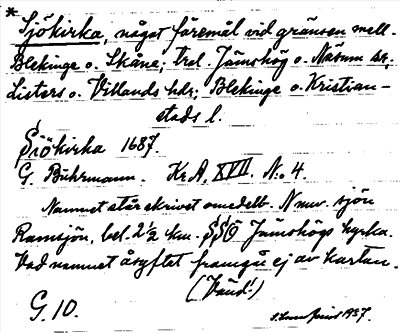 * Sjökirka, något föremål vid gränsen mell.
Blekinge o. Skåne; trol. Jämshög o. Näsum sn,
Listers o. Villands hdr; Blekinge o. Kristian-
stads l.
Siökirka 1687.
G. Buhrmann. KrA, XVII, N:o 4.
Namnet står skrivet omedelb. N nuv. sjön
Ramsjön, bel. 2 1/2 km. SSO Jämshögs kyrka.
Vad namnet åsyftet framgå ej av kartan.
(Vänd!)
G. 10.
1937.